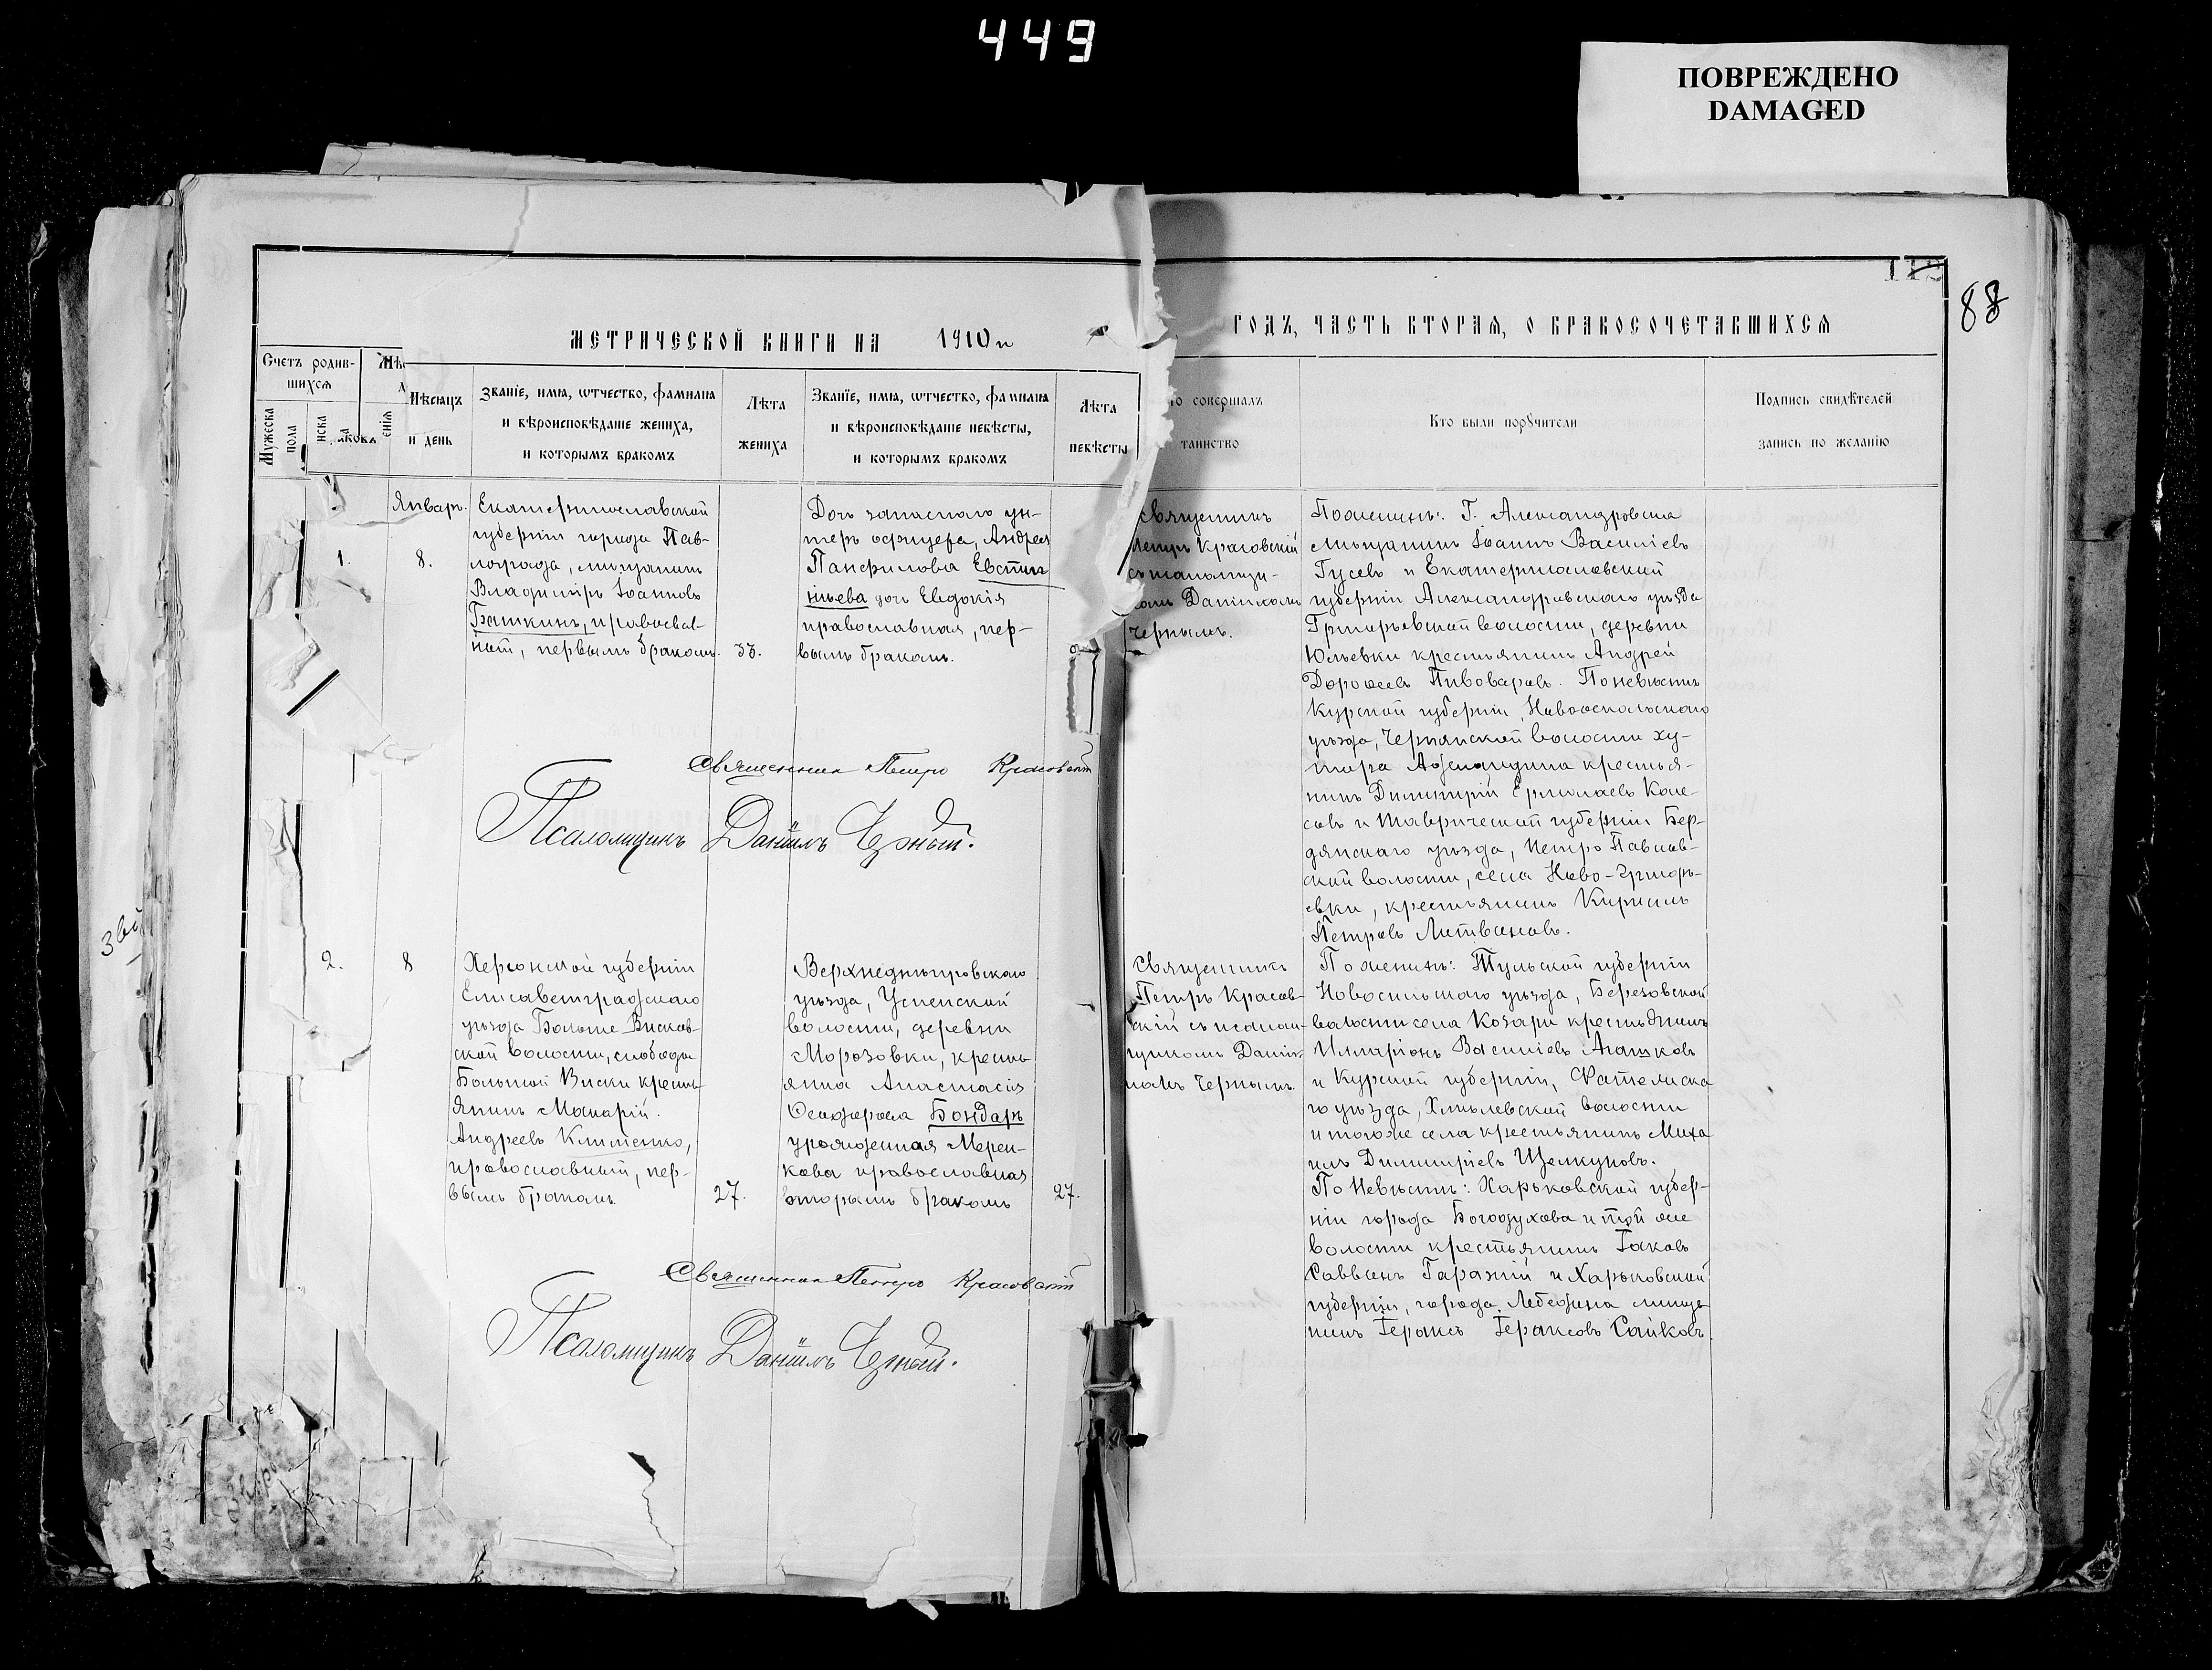 449
ПОВРЕЖДЕНО
DAMAGED
88
МЕТРИЧЕСКОЙ КНИГИ НА 1910й
ГОДЪ, ЧАСТЬ ВТОРАЯ, О БРАКОСОЧЕТАВШИХСЯ
Счетъ родив-
шихся
Мужеска
пола
Мѣсяцъ
и день
Званіе, имя, отчество, фамилія
и вѣроисповѣданіе жениха,
и которымъ бракомъ
Лѣта
жениха
Званіе, имя, отчество, фамилія
и вѣроисповѣданіе невѣсты,
и которымъ бракомъ
Лѣта
невѣсты
совершалъ
таинство
Кто были поручители
Подпись свидѣтелей
запись по желанію
1.
Январь.
8.
Екатеринославской
губерніи города Пав-
лограда, мѣщанинъ
Владиміръ Іоанновъ
Башкинъ, православ-
ный, первымъ бракомъ.
33.
Дочь запаснаго ун-
теръ офицера, Андрея
Панфилова Евстиг
нѣева дочь Евдокія
православная, пер-
вымъ бракомъ.
Священникъ
Петръ Красовскій
съ псаломщи-
комъ Даніиломъ
Чернымъ.
По женихѣ: Г. Александровска
мѣщанинъ Іоаннъ Васильевъ
Гусевъ и Екатеринославской
губерніи Александровскаго уѣзда
Григорьевской волости, деревни
Юльевки крестьянинъ Андрей
Дорофеевъ Пивоваровъ. По невѣстѣ
Курской губерніи, Новооскольскаго
уѣзда, Чернянской волости ху-
тора крестья-
нинъ Димитрій Ермолаевъ Коле-
совъ и Таврической губерніи Бер-
дянскаго уѣзда, Петро Павлов-
ской волости, села Ново-Григорь-
евки, крестьянинъ Кириллъ
Петровъ Литвиновъ.
Священникъ Петръ Красовскій
Псаломщикъ Даніилъ Черный.
2.
8
Херсонской губерніи
Елисаветградскаго
уѣзда Больше-Висков-
ской волости, слободы
Большой Виски кресть-
янинъ Макарій
Андреевъ Клименко,
православный, пер-
вымъ бракомъ
27.
Верхнеднѣпровскаго
уѣзда, Успенской
волости, деревни
Морозовки, кресть-
янка Анастасія
Бондарь
урожденная Мерен-
кова православная
вторымъ бракомъ
27.
Священникъ
Петръ Красов-
скій съ псалом-
щикомъ Даніи-
ломъ Чернымъ.
По женихѣ: Тульской губерніи
Новосильскаго уѣзда, Березовской
волости села Козари крестьянинъ
Илларіонъ Васильевъ Агашковъ
и Курской губерніи, Фатежска
го уѣзда, Хмѣлевской волости
и того же села крестьянинъ Миха
илъ Димитріевъ Щелкуновъ.
По Невѣстѣ: Харьковской губер-
ніи города Богодухова и той же
волости крестьянинъ Іаковъ
Саввинъ и Харьковской
губерніи, города Лебедина мѣща
нинъ Сайковъ.
Священникъ Петръ Красовскій
Псаломщикъ Даніилъ Черный.